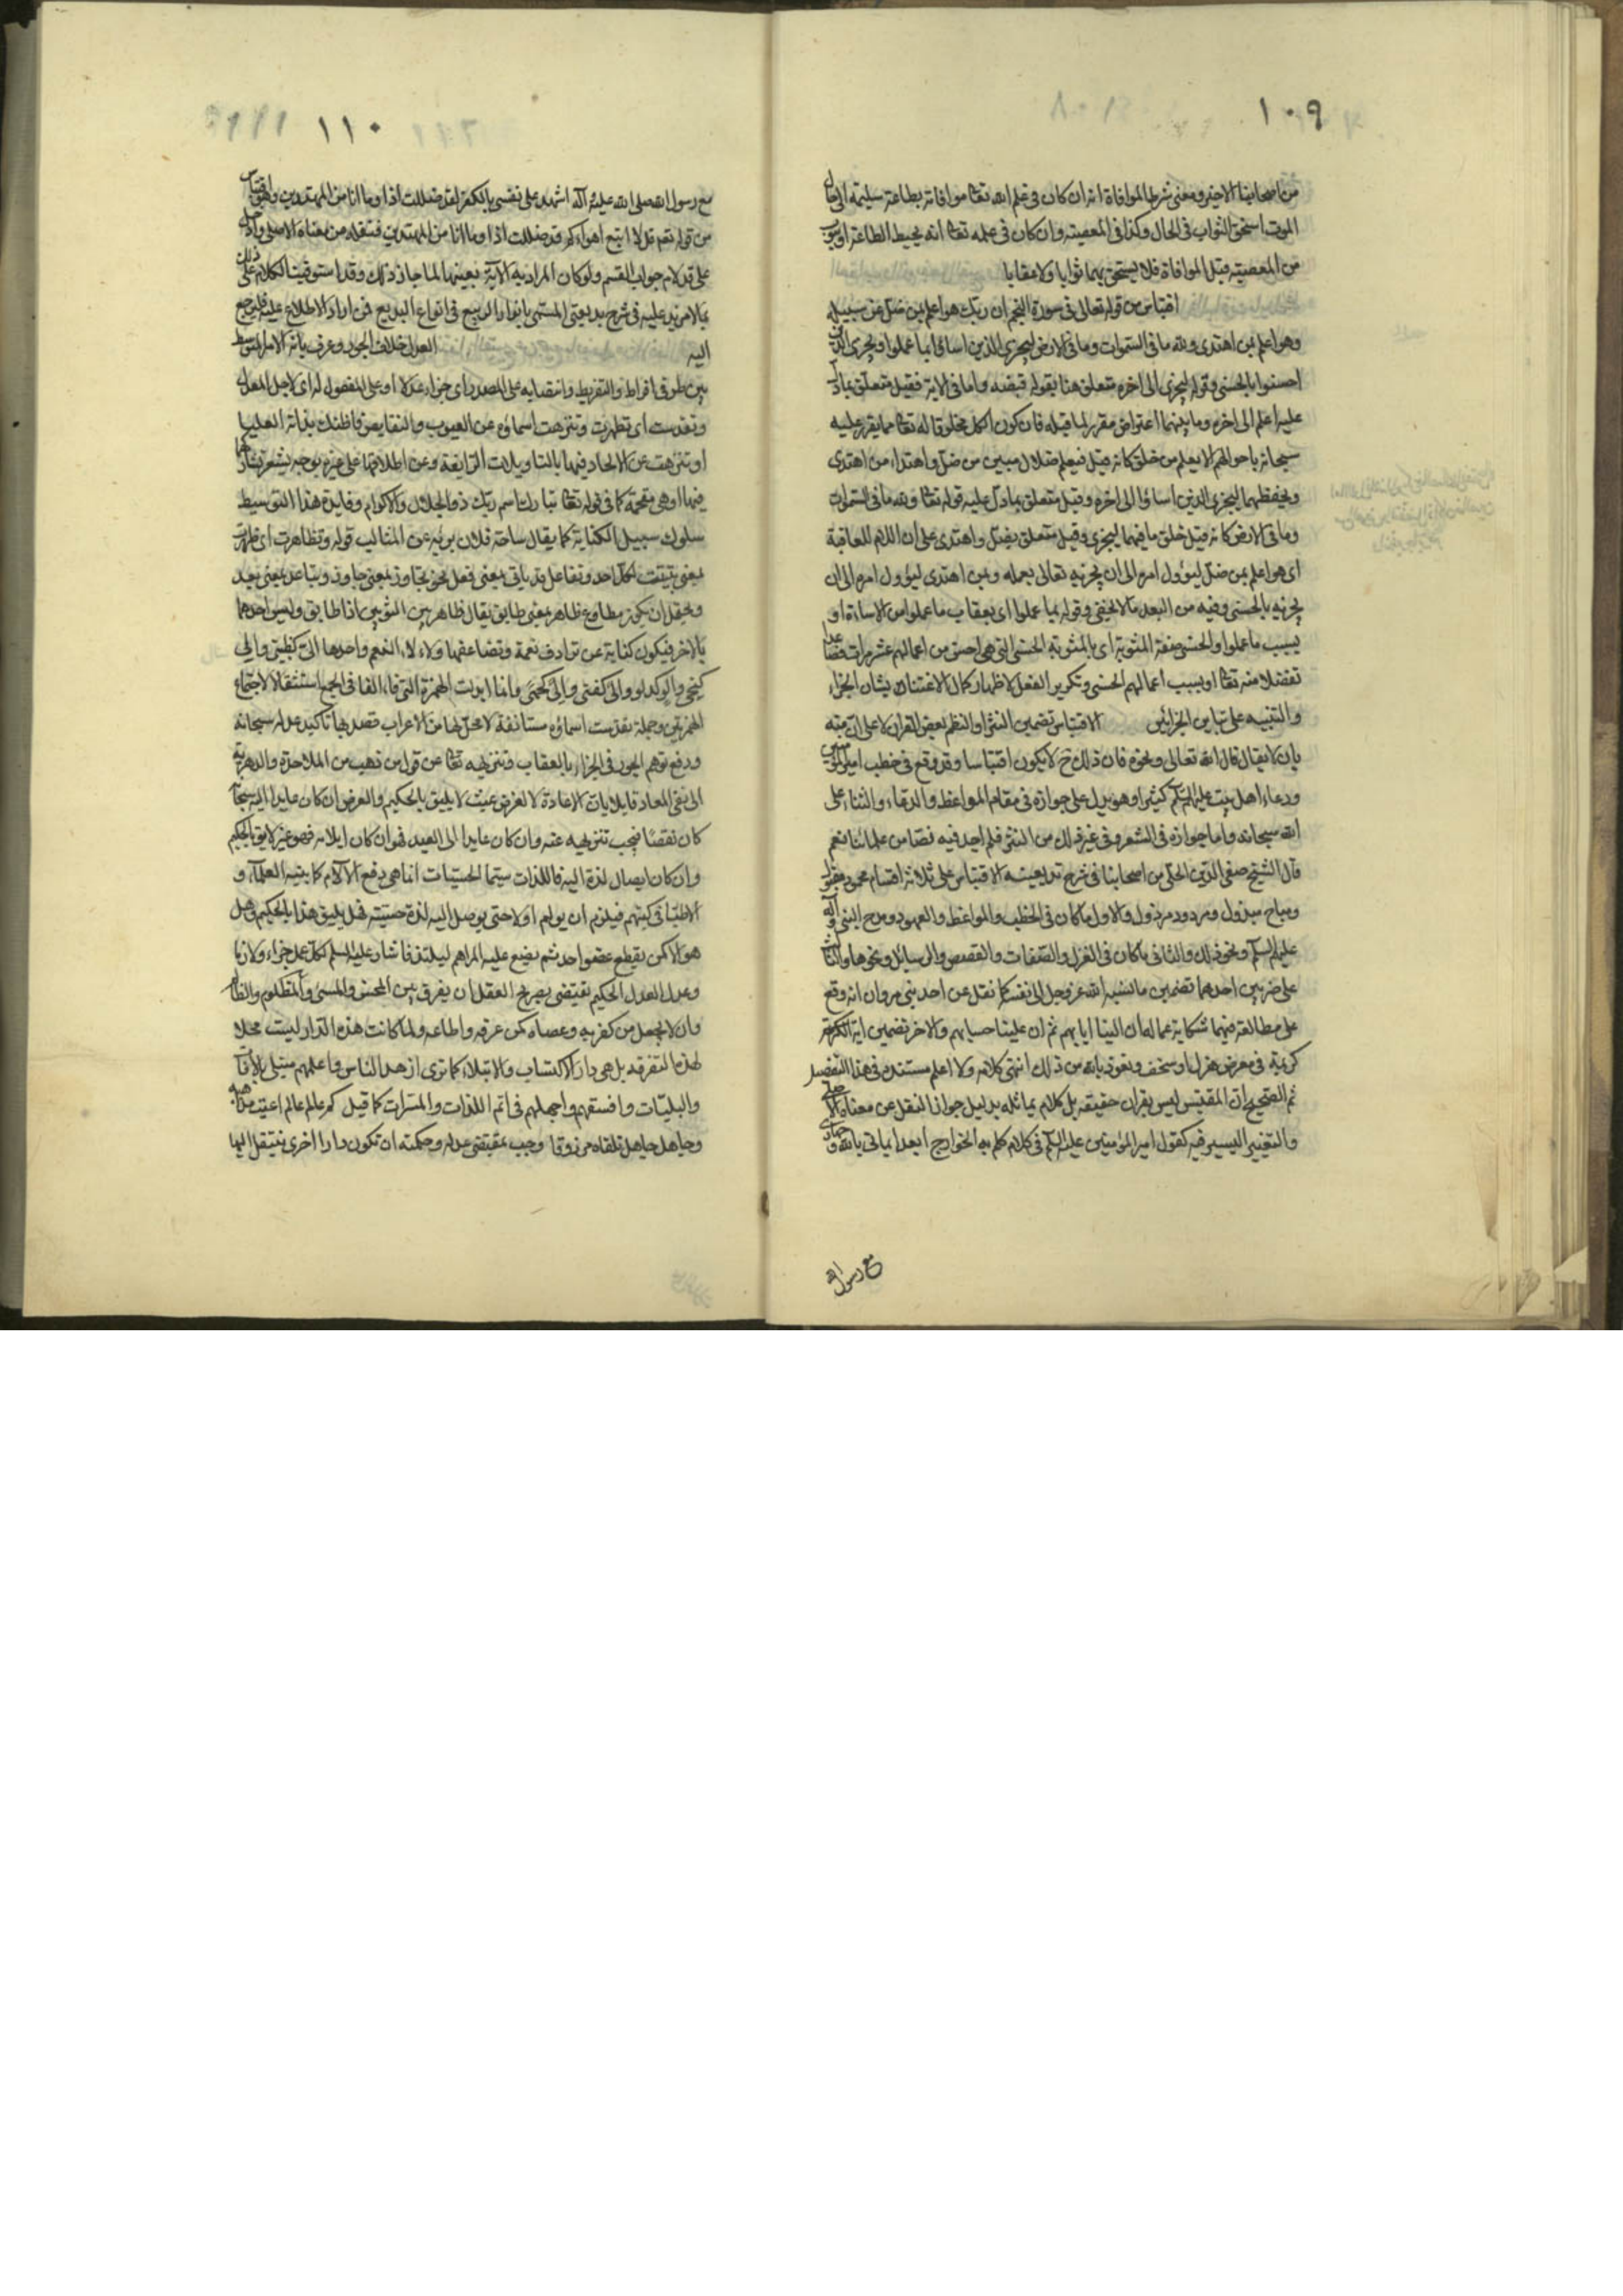 ١٠٩
من اصحابنا الاخير ومعنى شرط الموافاة انه ان كان في علم الله تعا موافاته بطاعة سليمة الى حال
الموت استحق الثواب في الحال وكذا في المعصية وان كان في علمه تعا انه يحبط الطاعة او يتوب
من المعصية قبل الموافاة فلا يستحق بهما ثوابا ولا عقابا
اقتباس من قوله تعالى في سورة النجم ان ربك هو اعلم بمن ضل عن سبيله
وهو اعلم بمن اهتدى ولله ما في السموات وما في الارض ليجزي الذين اساؤا بما عملوا ويجزي الذين
احسنوا بالحسنى وقوله ليجزي الى اخره متعلق هنا بقوله قبضه واما في الاية فقيل متعلق بما دل
عليه اعلم الى اخره وما بينهما اعتراض مقرر لما قبله فان كون الكل مخلوقا له تعا مما يقرر علمه
سبحانه باحوالهم الا يعلم من خلق كانه قيل فيعلم ضلال مبين من ضل واهتداء من اهتدى
ويحفظهما ليجزي الذين اساؤا الى اخره وقيل متعلق بما دل عليه قوله تعا ولله ما في السموات
وما في الارض كانه قيل خلق ما فيهما ليجزي وقيل متعلق بضل واهتدى على ان اللام للعاقبة
اى هو اعلم بمن ضل ليؤول امره الى ان يجزيه تعالى بعمله وبمن اهتدى ليؤول امره الى ان
يجزيه بالحسنى وفيه من البعد ما لا يخفى وقوله بما عملوا اى بعقاب ما عملوا من الاساءة او
بسبب ما عملوا والحسنى صفة المثوبة اى بالمثوبة الحسنى التى هى احسن من اعمالهم عشر مرات فصاعدا
تفضلا منه تعا او بسبب اعمالهم الحسنى وتكرير الفعل لاظهار كمال الاعتناء بشان الجزاء
والتنبيه على تباين الجزائين الاقتباس تضمين النثر او النظم بعض القران لا على انه منه
بان لا يقال قال الله تعالى ونحوه فان ذلك ح لا يكون اقتباسا وقد وقع في خطب امير المؤمنين
ودعاء اهل بيت عليهم السلم كثيرا وهو يدل على جوازه في مقام المواعظ والدعاء والثناء على
الله سبحانه واما جوازه في الشعر وفي غير ذلك من النثر فلم اجد فيه نصا من علمائنا نعم
قال الشيخ صفي الدين الحلي من اصحابنا في شرح بديعيته الاقتباس على ثلاثة اقسام محمود مقبول
ومباح مبذول ومردود مرذول فالاول ما كان في الخطب والمواعظ والعهود ومدح النبي وآله
عليهم السلم ونحو ذلك والثاني ما كان في الغزل والصفات والقصص والرسايل ونحوها والثالث
على ضربين احدهما تضمين ما نسبه الله عز وجل الى نفسه كما نقل عن احد بني مروان انه وقع
على مطالعة فيها شكاية عماله ان الينا ايابهم ثم ان علينا حسابهم والاخر تضمين اية
كريمة في معرض هزل او سخف ونعوذ بالله من ذلك انتهى كلامه ولا اعلم مستنده في هذا التفصيل
ثم الصحيح ان المقتبس ليس بقران حقيقه بل كلام يماثله بدليل جواز النقل عن معناه الاصلي
والتغيير اليسير فيه كقول امير المؤمنين عليه السلم في كلام كلم به الخوارج ابعد ايماني بالله وجهادي
مع رسول الله
١١٠
مع رسول الله صلى الله عليه وآله اشهد على نفسي بالكفر لقد ضللت اذا وما انا من المهتدين وهو اقتباس
من قوله تعم قل لا اتبع اهواءكم قد ضللت اذا وما انا من المهتدين فنقله من معناه الاصلي وادخل
على قد لام جواب القسم ولو كان المراد به الاية بعينها لما جاز ذلك وقد استوفينا الكلام على ذلك
بما لا مزيد عليه في شرح بديعيتي المسمى بانوار الربيع في انواع البديع فمن اراد الاطلاع عليه فليرجع
اليه العدل خلاف الجور وعرف بانه الامر المتوسط
بين طرفي افراط والتفريط وانتصابه على المصدر اى جزاء عدلا او على المفعول له اى لاجل العدل
وتقدست اى تطهرت وتنزهت اسماؤه عن العيوب والنقايص فما ظنك بذاته العليا
او تنزهت عن الالحاد فيها بالتاويلات الزايغة وعن اطلاقها على غيره بوجه يشعر بتشاركهما
فيها او هى مقحمة كما في قوله تعا تبارك اسم ربك ذو الجلال والاكرام وفايدة هذا التوسيط
سلوك سبيل الكناية كما يقال ساحة فلان بريئه عن المثالب قوله وتظاهرت اى ظهرت
بمعنى تبينت لكل احد وتفاعل قد ياتي بمعنى فعل نحو تجاوز بمعنى جاوز وتباعد بمعنى بعد
ويحتمل ان يكون مطاوع ظاهر بمعنى طابق يقال ظاهر بين الثوبين اذا طابق ولبس احدهما
بالاخر فيكون كناية عن ترادف نعمة وتضاعفها ولاء لاء النعم واحدها الى كظبى والي
كنحي والو كدلو والى كفتى والى كحمى وانما ابدلت الهمزة التى فاء الفا في الجمع استثقالا لاجتماع
الهمزتين وجملة تقدست اسماؤه مستانفة لا محل لها من الاعراب قصد بها تاكيد عدله سبحانه
ودفع توهم الجور في الجزاء بالعقاب وتنزيهه تعا عن قول من ذهب من الملاحدة والدهرية
الى نفي المعاد قايلا بان الاعادة لا لغرض عبث لا يليق بالحكيم والغرض ان كان عايدا اليه سبحانه
كان نقصا فيجب تنزيهه عنه وان كان عايدا الى العبد فهو ان كان ايلامه فهو غير لايق بالحكيم
وان كان ايصال لذة اليه فاللذات سيما الحسيات انما هي دفع الآلام كما بينه العلماء و
الاطباء في كتبهم فيلزم ان يولم اولا حتى يوصل اليه لذة حسية فهل يليق هذا بالحكيم وهل
هو الا كمن يقطع عضو احد ثم يضع عليه المراهم ليلتذ فاشار عليه السلم لكل عمل جزاء ولازما
وعدل العدل الحكيم يقتضي بصريح العقل ان يفرق بين المحسن والمسئ والمظلوم والظالم
وان لا يجعل من كفر به وعصاه كمن عرفه واطاعه ولما كانت هذه الدار ليست محلا
لهذه التفرقه بل هى دار الاكتساب والابتلاء كما ترى ازهد الناس واعلمهم مبتلى بالآفات
والبليات وافسقهم واجهلهم في اتم اللذات والمسرات كما قيل كم عالم عالم اعيت مذاهبه
وجاهل جاهل تلقاه مرزوقا وجب بمقتضى عدله وحكمته ان تكون دارا اخرى ينتقل اليها